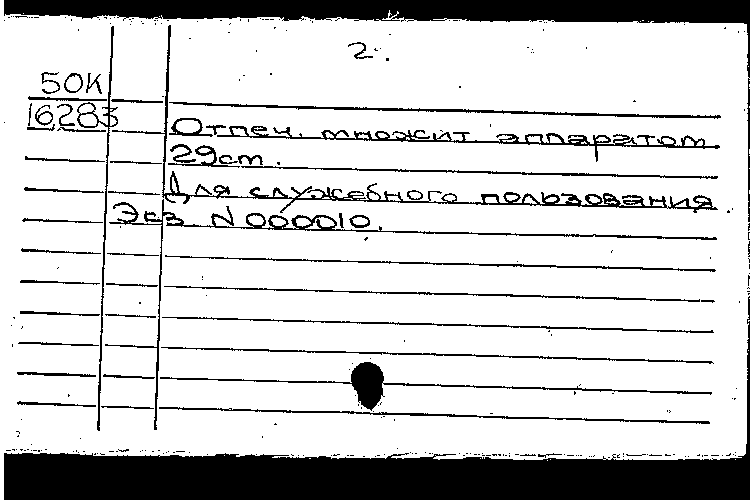 2.
50К
16283
Отпеч. множит аппаратом
29ст.
Для служебного пользования.
Экз N000010.